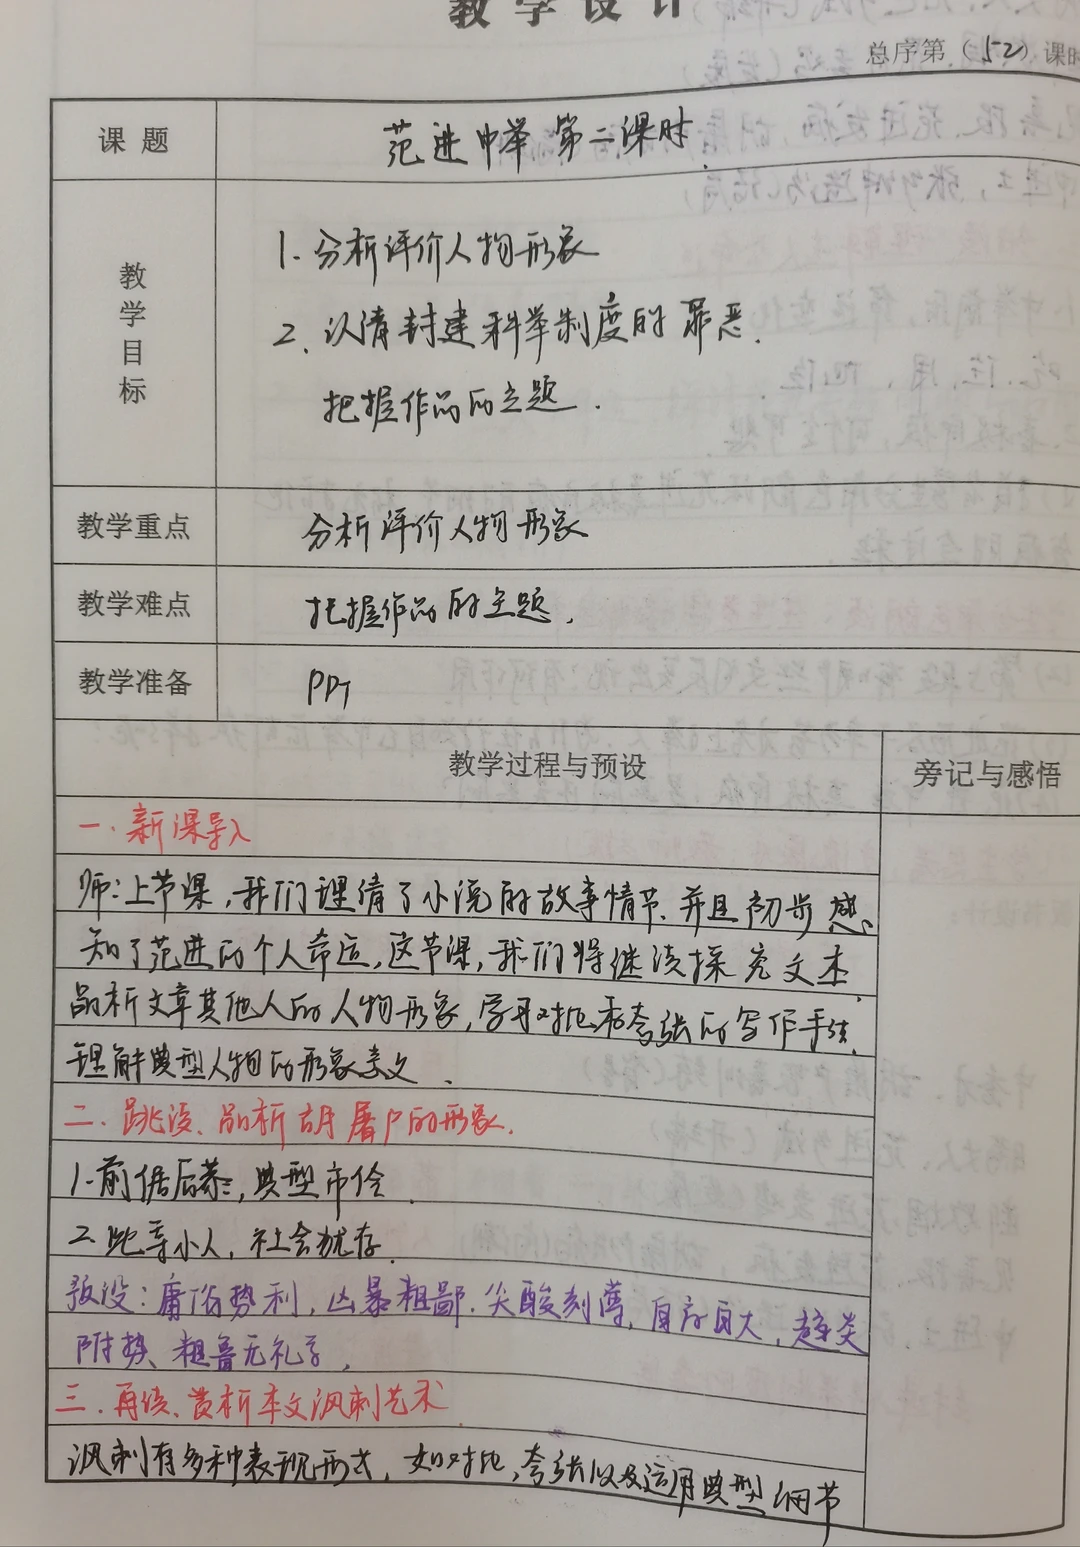 教学设计
总序第（52）课时
课题
范进中举 第二课时.
教学目标
1. 分析评价人物形象
2. 认清封建科举制度的罪恶.
把握作品的主题.
教学重点
分析评价人物形象
教学难点
把握作品的主题.
教学准备
PPT
教学过程与预设
旁记与感悟
一. 新课导入
师:上节课,我们理清了小说的故事情节、并且初步感
知了范进的个人命运,这节课,我们将继续探究文本,
品析文章其他人的人物形象,学习对比和夸张的写作手法,
理解典型人物的形象意义.
二. 跳读、品析胡屠户的形象.
1.前倨后恭,典型市侩.
2.此等小人,社会犹存.
预设:庸俗势利,凶暴粗鄙.尖酸刻薄,自高自大,趋炎
附势、粗鲁无礼等.
三. 再读、赏析本文讽刺艺术.
讽刺有多种表现形式,如对比,夸张以及运用典型细节